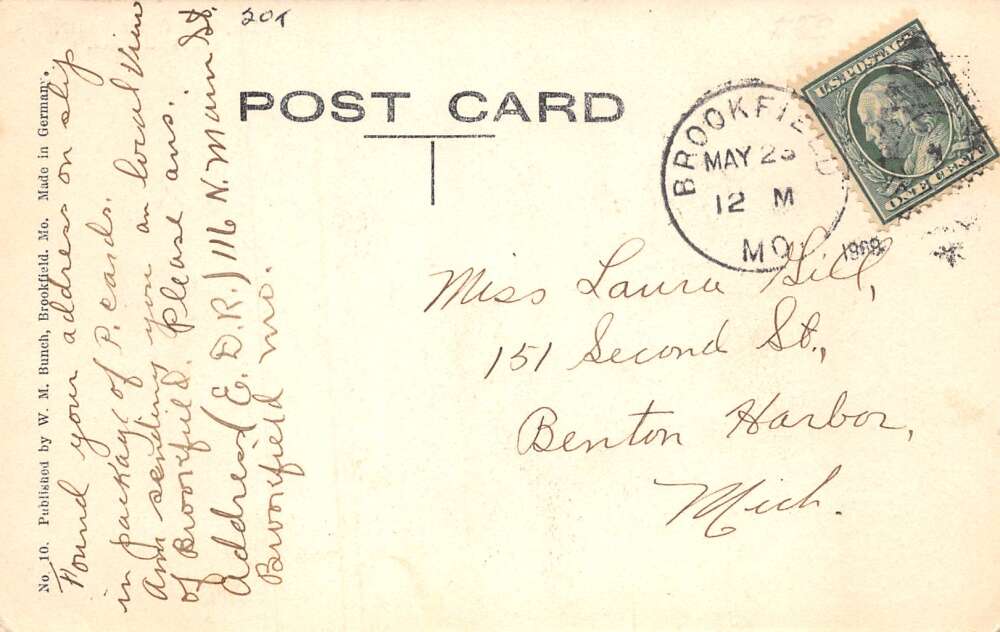 20¢
POST CARD
BROOKFIELD
MAY 25
12 M
MO.
1909
U.S. POSTAGE
ONE CENT
Miss Laura Gill,
151 Second St.,
Benton Harbor,
Mich.
No. 10. Published by W. M. Bunch, Brookfield. Mo. Made in Germany.
Found your address on slip
in package of P. cards.
Am sending you an local View
of Brookfield. Please ans.
Address (E. D. R.) 116 N. Main St.
Brookfield Mo.